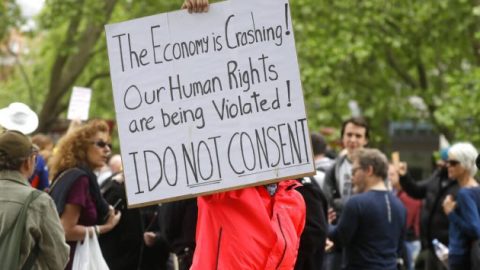 The Economy is Crashing!
Our Human Rights
are being Violated!
I DO NOT CONSENT